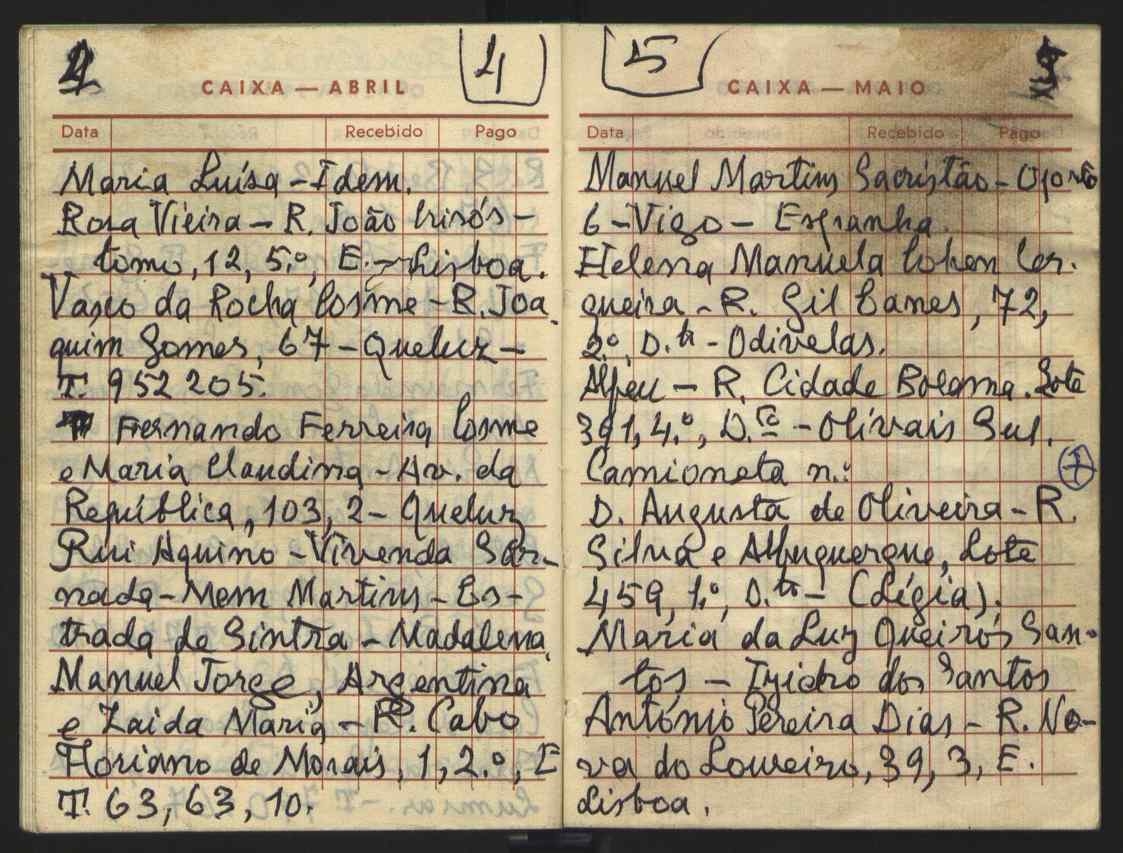 4
CAIXA — ABRIL
Data Recebido Pago
Maria Luísa - Idem.
Rosa Vieira - R. João Crisós-
tomo, 12, 5.º, E. - Lisboa.
Vasco da Rocha Cosme - R. Joa
quim Gomes, 67 - Queluz -
T. 952 205.
Fernando Ferreira Cosme
e Maria Claudina - Av. da
República, 103, 2 - Queluz
Rui Aquino - Vivenda Sar-
nada - Mem Martins - Es-
trada de Sintra - Madalena
Manuel Jorge, Argentina
e Zaida Maria - R. Cabo
Floriano de Morais, 1, 2.º, E
T. 63, 63, 10.
5
CAIXA — MAIO
Data Recebido Pago
Manuel Martins Sacristão - Oporto
6 - Vigo - Espanha.
Helena Manuela Cohen Cer.
queira - R. Gil Eanes, 72,
2.º, D.to - Odivelas.
Alfeu - R. Cidade Bolama. Lote
391, 4.º, D.to - Olivais Sul.
Camioneta n.: 7
D. Augusta de Oliveira - R.
Silva e Albuquerque, Lote
459, 1.º, D.to - (Lígia).
Maria da Luz Queirós San-
tos - Izidro dos Santos
António Pereira Dias - R. No-
va do Loureiro, 39, 3, E.
Lisboa.